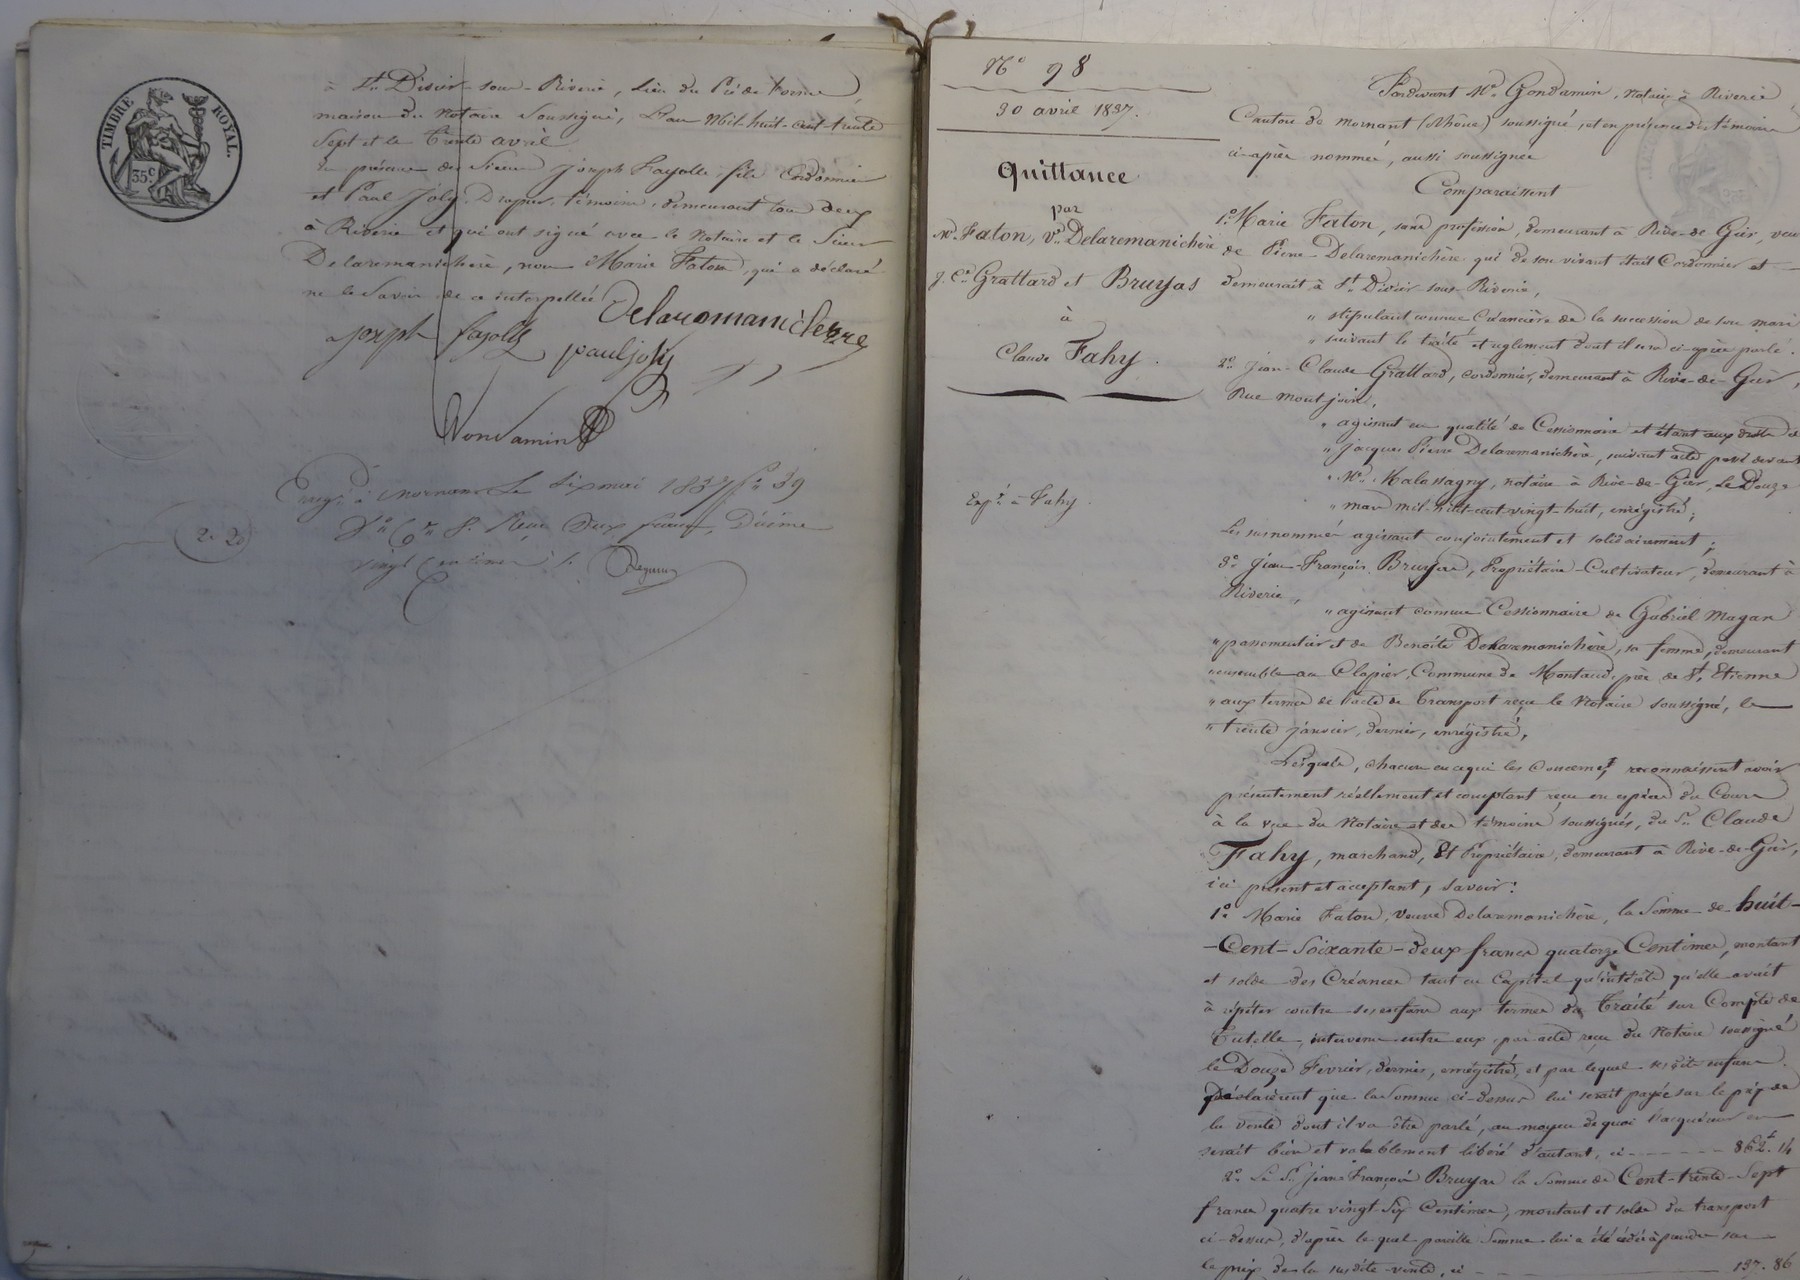 TIMBRE ROYAL.
35c
à St Didier-sous-Riverie, lieu du Pré de Forme,
maison du Notaire soussigné, l'an Mil-huit-cent-trente
Sept et le trente avril
En présence des Sieurs Joseph Fayolle fils Cordonnier
et Paul Joly, Drapier, témoins, demeurant tous deux
à Riverie et qui ont signé avec le Notaire et le Sieur
Delaremanichère, non Marie Faton, qui a déclaré
ne le savoir de ce interpellée
Delaromanicherre
Joseph fayolle
paul joly
Gondamin
Enregé à Mornant Le six mai 1837 fo 39
Ro Co 8. Reçu Deux francs, Décime
vingt centimes
2. 20
No 98
30 avril 1837.
Quittance
par
M. Faton, Ve Delaremanichère
J. Ce Grattard et Bruyas
à
Claude Fahy.
Expé à Fahy.
Pardevant Me Gondamin, Notaire à Riverie
Canton de Mornant (Rhône) soussigné, et en présence des témoins
ci-après nommés, aussi soussignés
Comparaissent
1o Marie Faton, sans profession, demeurant à Rive-de-Gier, veuve
de Pierre Delaremanichère qui de son vivant était Cordonnier et
demeurait à St Didier-sous-Riverie,
" stipulant comme Créancière de la succession de son mari
" suivant le traité et règlement dont il sera ci-après parlé.
2o Jean-Claude Grattard, cordonnier, demeurant à Rive-de-Gier,
Rue Montjoint,
" agissant en qualité de Cessionnaire et étant aux droits de
" Jacques Pierre Delaremanichère, suivant acte passé devant
" Me Malassagny, notaire à Rive-de-Gier, le Douze
" mars mil-huit-cent-vingt-huit, enregistré;
Les susnommés agissant conjointement et solidairement;
3o Jean-François Bruyas, Propriétaire-Cultivateur, demeurant à
Riverie,
" agissant comme Cessionnaire de Gabriel Magan
" passementier et de Benoîte Delaremanichère, sa femme, demeurant
" ensemble au Clapier, Commune de Montaud, près de St Etienne
" aux termes de l'acte de Transport reçu le Notaire soussigné, le
" trente janvier, dernier, enregistré,
Lesquels, chacun en ce qui les concerne, reconnaissent avoir
présentement réellement et comptant reçu en espèces du Cours
à la vue du Notaire et des témoins soussignés, du Sr Claude
Fahy, marchand, et Propriétaire, demeurant à Rive-de-Gier,
ici présent et acceptant, savoir:
1o Marie Faton, veuve Delaremanichère, la Somme de huit-
-Cent-Soixante-deux francs quatorze Centimes, montant
et solde des Créances tant en Capital qu'intérêts qu'elle avait
à répéter contre ses enfans aux termes du Traité sur Compte de
Tutelle, intervenu entre eux par acte reçu du Notaire soussigné
le Douze Février, dernier, enregistré, et par lequel ses dits enfans
déclarèrent que la Somme ci-dessus lui serait payée sur le prix de
la vente dont il va être parlé, au moyen de quoi l'acquéreur en
serait bien et valablement libéré d'autant, ci ------ 862f. 14
2o Le Sr Jean-François Bruyas la Somme de Cent-trente-Sept
francs quatre vingt-six Centimes, montant et solde du transport
ci-dessus, d'après lequel pareille Somme lui a été cédée à prendre sur
le prix de la susdite vente, ci ------ 137. 86